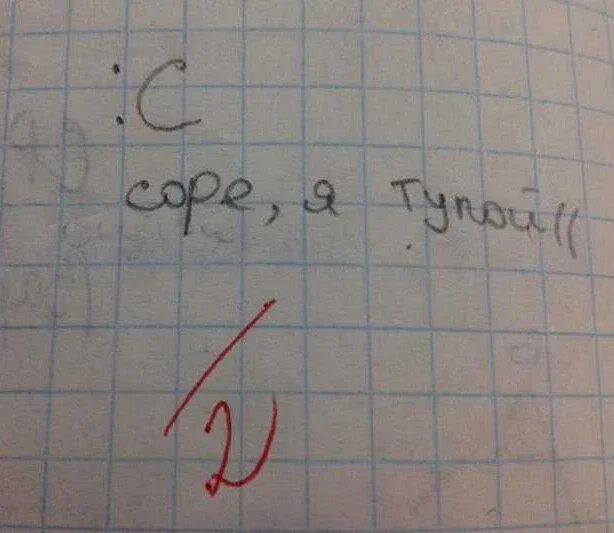 :С
соре, я тупой((
2